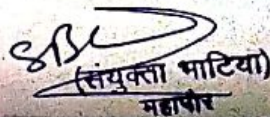 (संयुक्ता भाटिया)
महापौर